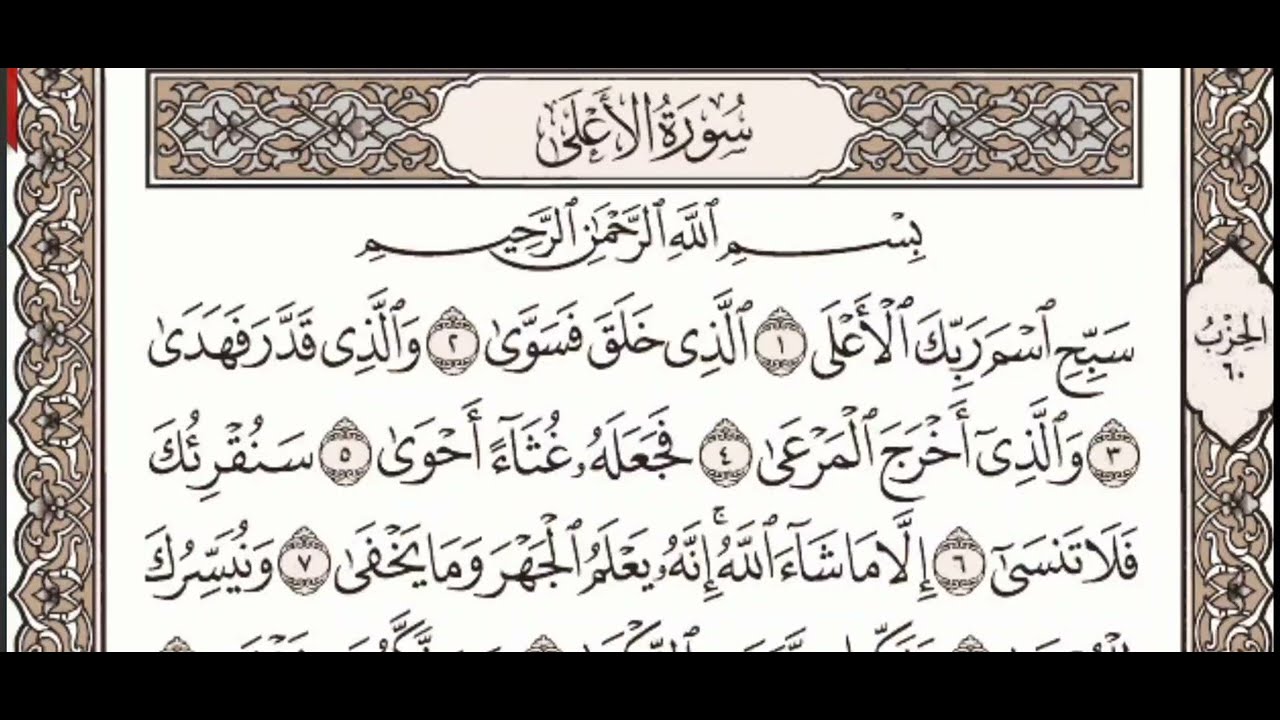 سُورَةُ الأَعْلَى
بِسْمِ ٱللَّهِ ٱلرَّحْمَٰنِ ٱلرَّحِيمِ
سَبِّحِ ٱسْمَ رَبِّكَ ٱلْأَعْلَى ١ ٱلَّذِى خَلَقَ فَسَوَّىٰ ٢ وَٱلَّذِى قَدَّرَ فَهَدَىٰ
الحِزْبُ
٦٠
٣ وَٱلَّذِىٓ أَخْرَجَ ٱلْمَرْعَىٰ ٤ فَجَعَلَهُۥ غُثَآءً أَحْوَىٰ ٥ سَنُقْرِئُكَ
فَلَا تَنسَىٰٓ ٦ إِلَّا مَا شَآءَ ٱللَّهُ ۚ إِنَّهُۥ يَعْلَمُ ٱلْجَهْرَ وَمَا يَخْفَىٰ ٧ وَنُيَسِّرُكَ